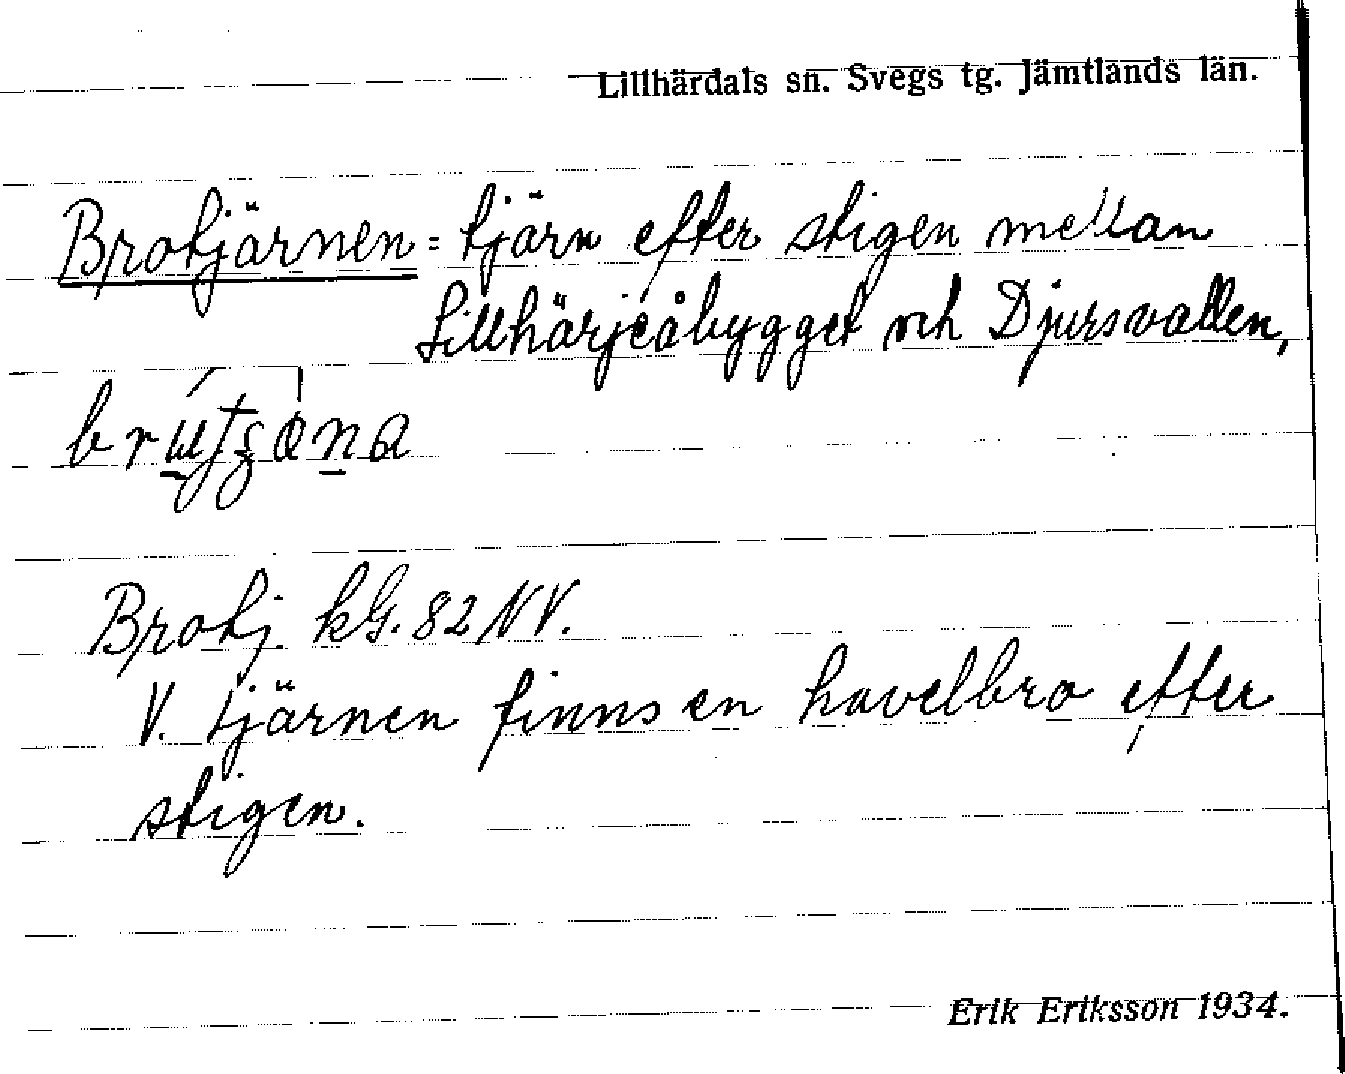 Lillhärdals sn. Svegs tg. Jämtlands län.
Brotjärnen = tjärn efter stigen mellan
Lillhärjeåbygget och Djursvallen,
Brotj. kG. 82 NV.
V. tjärnen finns en kavelbro efter
stigen.
Erik Eriksson 1934.